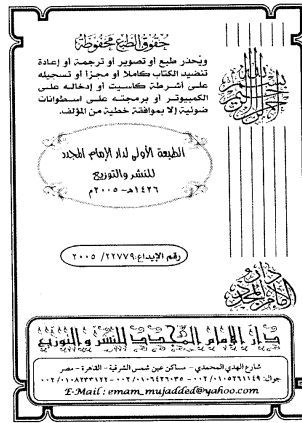 حقوق الطبع محفوظة
ويُحذر طبع أو تصوير أو ترجمة أو إعادة
تنضيد الكتاب كاملاً أو مجزأ أو تسجيله
على أشرطة كاسيت أو إدخاله على
الكمبيوتر أو برمجته على اسطوانات
ضوئية إلا بموافقة خطية من المؤلف.
بسم الله الرحمن الرحيم
الطبعة الأولى لدار الإمام المجدد
للنشر والتوزيع
١٤٢٦هـ - ٢٠٠٥م
رقم الإيداع: ٢٢٧٧٩ / ٢٠٠٥
دار الإمام المجدد
دار الإمام المجدد للنشر والتوزيع
شارع الهدي المحمدي - مساكن عين شمس الشرقية - القاهرة - مصر
جوال: ٠٠٢/٠١٠٥٢٦١١٤٩ - ٠٠٢/٠١٠٦٤٢٦٠٣٥ - ٠٠٢/٠١٠٨٢٣٣١٢٢
E-Mail : emam_mujadded@yahoo.com